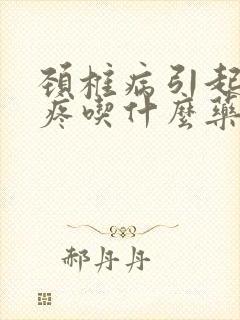 颈椎病引起
疼喫什麼藥
郝丹丹